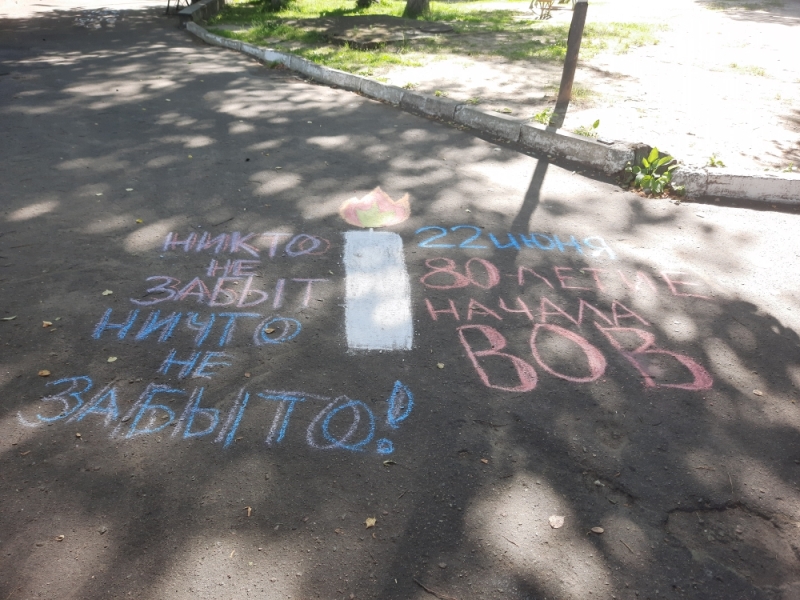 НИКТО
НЕ
ЗАБЫТ
НИЧТО
НЕ
ЗАБЫТО!
22 июня
80-ЛЕТИЕ
НАЧАЛА
ВОВ